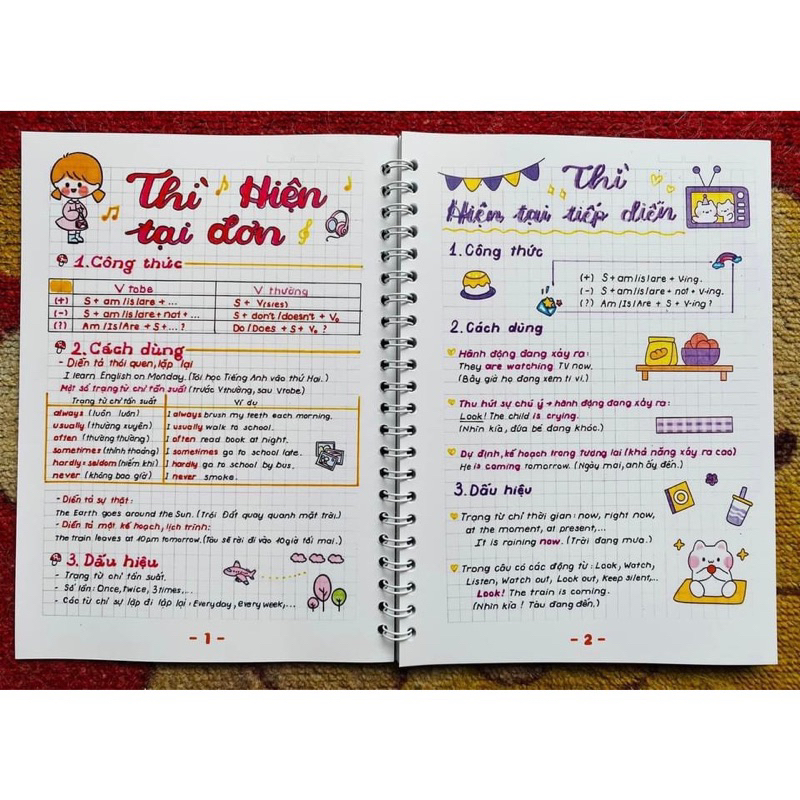 Thì Hiện
tại đơn
1. Công thức
V tobe V thường
(+) S + am/is/are + ... S + V(s/es)
(-) S + am/is/are + not + ... S + don't/doesn't + V₀
(?) Am/Is/Are + S + ... ? Do/Does + S + V₀ ?
2. Cách dùng
- Diễn tả thói quen, lặp lại
I learn English on Monday. (Tôi học Tiếng Anh vào thứ Hai.)
Một số trạng từ chỉ tần suất (trước Vthường, sau Vtobe)
Trạng từ chỉ tần suất Ví dụ
always (luôn luôn) I always brush my teeth each morning.
usually (thường xuyên) I usually walk to school.
often (thường thường) I often read book at night.
sometimes (thỉnh thoảng) I sometimes go to school late.
hardly = seldom (hiếm khi) I hardly go to school by bus.
never (không bao giờ) I never smoke.
- Diễn tả sự thật:
The Earth goes around the Sun. (Trái Đất quay quanh mặt trời.)
- Diễn tả một kế hoạch, lịch trình:
the train leaves at 10pm tomorrow. (Tàu sẽ rời đi vào 10 giờ tối mai.)
3. Dấu hiệu
- Trạng từ chỉ tần suất.
- Số lần: Once, twice, 3 times,...
- Các từ chỉ sự lặp đi lặp lại: Everyday, Every week,...
- 1 -
Thì
Hiện tại tiếp diễn
1. Công thức
(+) S + am/is/are + V-ing.
(-) S + am/is/are + not + V-ing.
(?) Am/Is/Are + S + V-ing ?
2. Cách dùng
Hành động đang xảy ra:
They are watching TV now.
(Bây giờ họ đang xem ti vi.)
Thu hút sự chú ý → hành động đang xảy ra:
Look! The child is crying.
(Nhìn kìa, đứa bé đang khóc.)
Dự định, kế hoạch trong tương lai (khả năng xảy ra cao)
He is coming tomorrow. (Ngày mai, anh ấy đến.)
3. Dấu hiệu
Trạng từ chỉ thời gian: now, right now,
at the moment, at present,...
It is raining now. (Trời đang mưa.)
Trong câu có các động từ: Look, Watch,
Listen, Watch out, Look out, Keep silent,...
Look! The train is coming.
(Nhìn kìa! Tàu đang đến.)
- 2 -